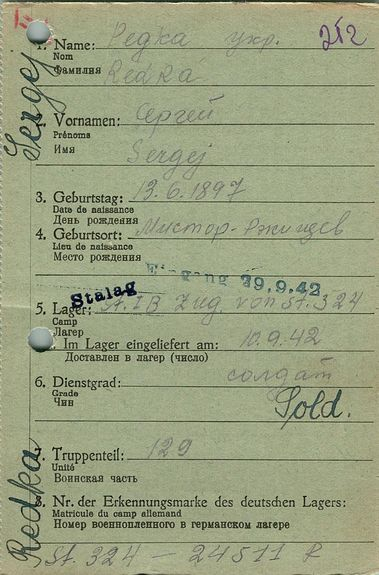 252
1. Name: Редка укр.
Nom
Фамилия Redka
2. Vornamen: Сергей
Prénoms
Имя Sergej
3. Geburtstag: 13.6.1897
Date de naissance
День рождения
4. Geburtsort: Мистор-Ржищев
Lieu de naissance
Место рождения
Eingang 29.9.42
Stalag
5. Lager: St. I B Zug. von St. 324
Camp
Лагер
Im Lager eingeliefert am: 10.9.42
Доставлен в лагер (число)
6. Dienstgrad: солдат
Grade
Чин Sold.
7. Truppenteil: 129
Unité
Воинская часть
8. Nr. der Erkennungsmarke des deutschen Lagers:
Matricule du camp allemand
Номер военнопленного в германском лагере
St. 324 — 24511
Redka Sergej